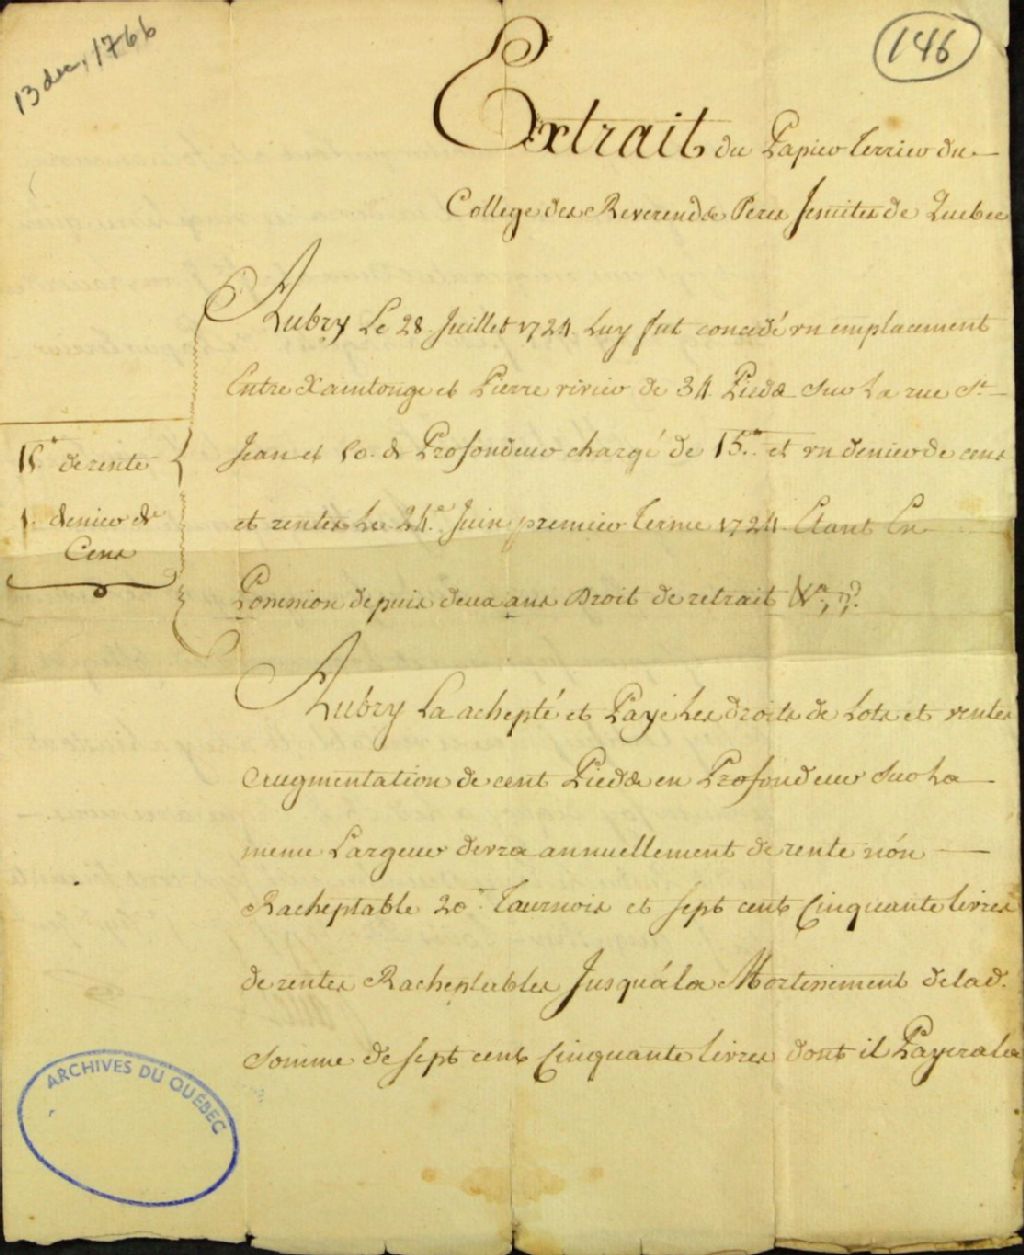 13 dec, 1766
146
Extrait du Papier terrier du
College des Reverends Peres Jesuites de Quebec
Aubry Le 28 Juillet 1724 Luy fut concedé un emplacement
Entre Xaintonge et Pierre rivier de 34 Pieds sur La rue St
Jean et 50. de Profondeur chargé de 15s et un denier de cens
et rentes Le 24e Juin premier terme 1724 Etant En
Possession depuis deux ans Droit de retrait
15s de rente
1. denier de
Cens
Aubry La achepté et Payé Les droits de Lots et ventes
augmentation de cent Pieds en Profondeur sur La
meme Largeur devra annuellement de rente nón
Racheptable 20s Tournois et sept cent Cinquante livres
de rentes Racheptables Jusquá la Mortissement de lad.
Somme de sept cent Cinquante livres dont il Payera la
ARCHIVES DU QUÉBEC